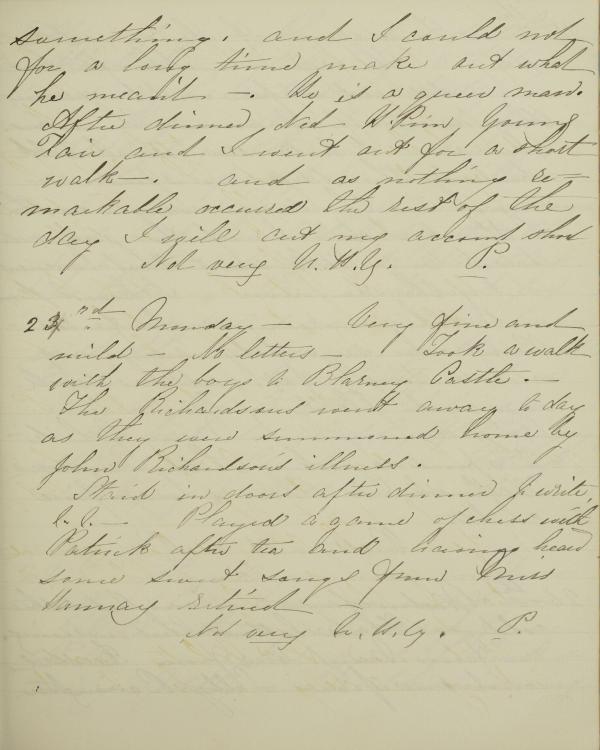 something. and I could not
for a long time make out what
he meant —. He is a queer man.
After dinner Ned W. Pim Young
Fair and I went out for a short
walk —. and as nothing re=
markable occurred the rest of the
day I will cut my account short
Not very U. H. Y. P.
23rd Munday — Very fine and
mild — No letters — Took a walk
with the boys to Blarney Castle. —
The Richardsons went away to day
as they were summoned home by
John Richardson's illness.
Staid in doors after dinner & write
Played a game of chess with
Patrick after tea and having heard
some sweet songs from Miss
retired
Not very U. H. Y. P.